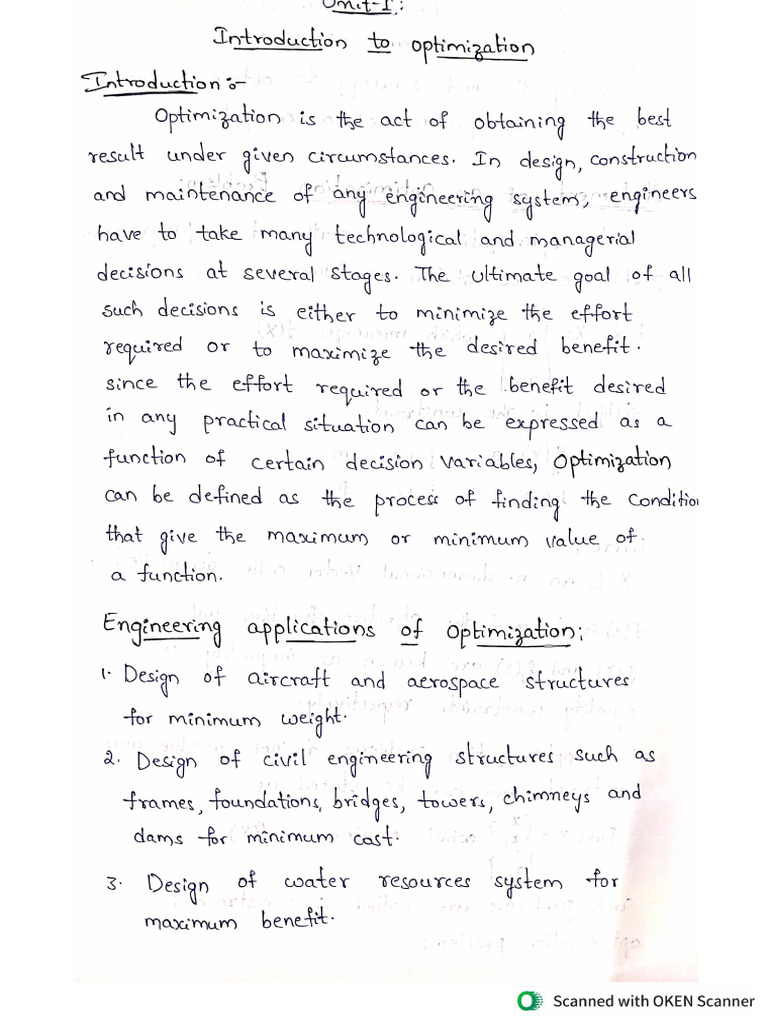 Unit-I:
Introduction to optimization
Introduction :-
Optimization is the act of obtaining the best
result under given circumstances. In design, construction
and maintenance of any engineering system, engineers
have to take many technological and managerial
decisions at several stages. The ultimate goal of all
such decisions is either to minimize the effort
required or to maximize the desired benefit.
since the effort required or the benefit desired
in any practical situation can be expressed as a
function of certain decision variables, optimization
can be defined as the process of finding the conditio
that give the maximum or minimum value of
a function.
Engineering applications of optimization:
1. Design of aircraft and aerospace structures
for minimum weight.
2. Design of civil engineering structures such as
frames, foundations, bridges, towers, chimneys and
dams for minimum cost.
3. Design of water resources system for
maximum benefit.
Scanned with OKEN Scanner